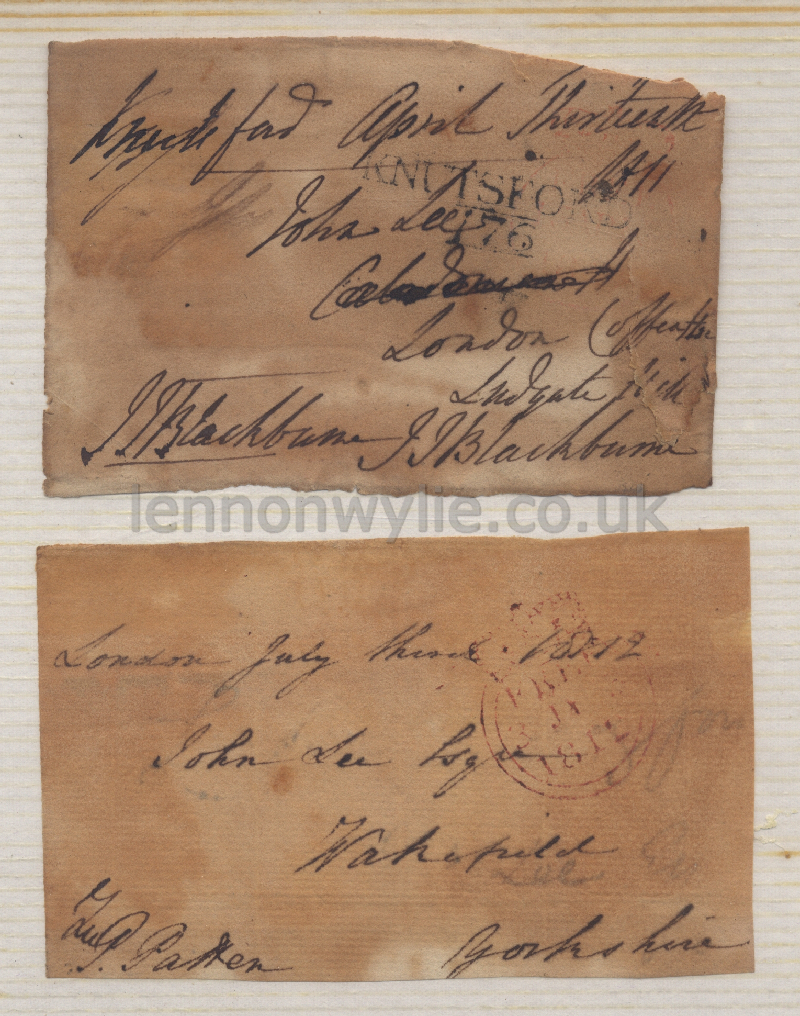 Knutsford April Thirteenth
1811
KNUTSFORD
176
John Lee
London Coffeehou
Ludgate Hill
J Blackburne J Blackburne
lennonwylie.co.uk
London July third 1812
FREE
3 JY
1812
John Lee Esqre
Wakefield
P. Patten Yorkshire